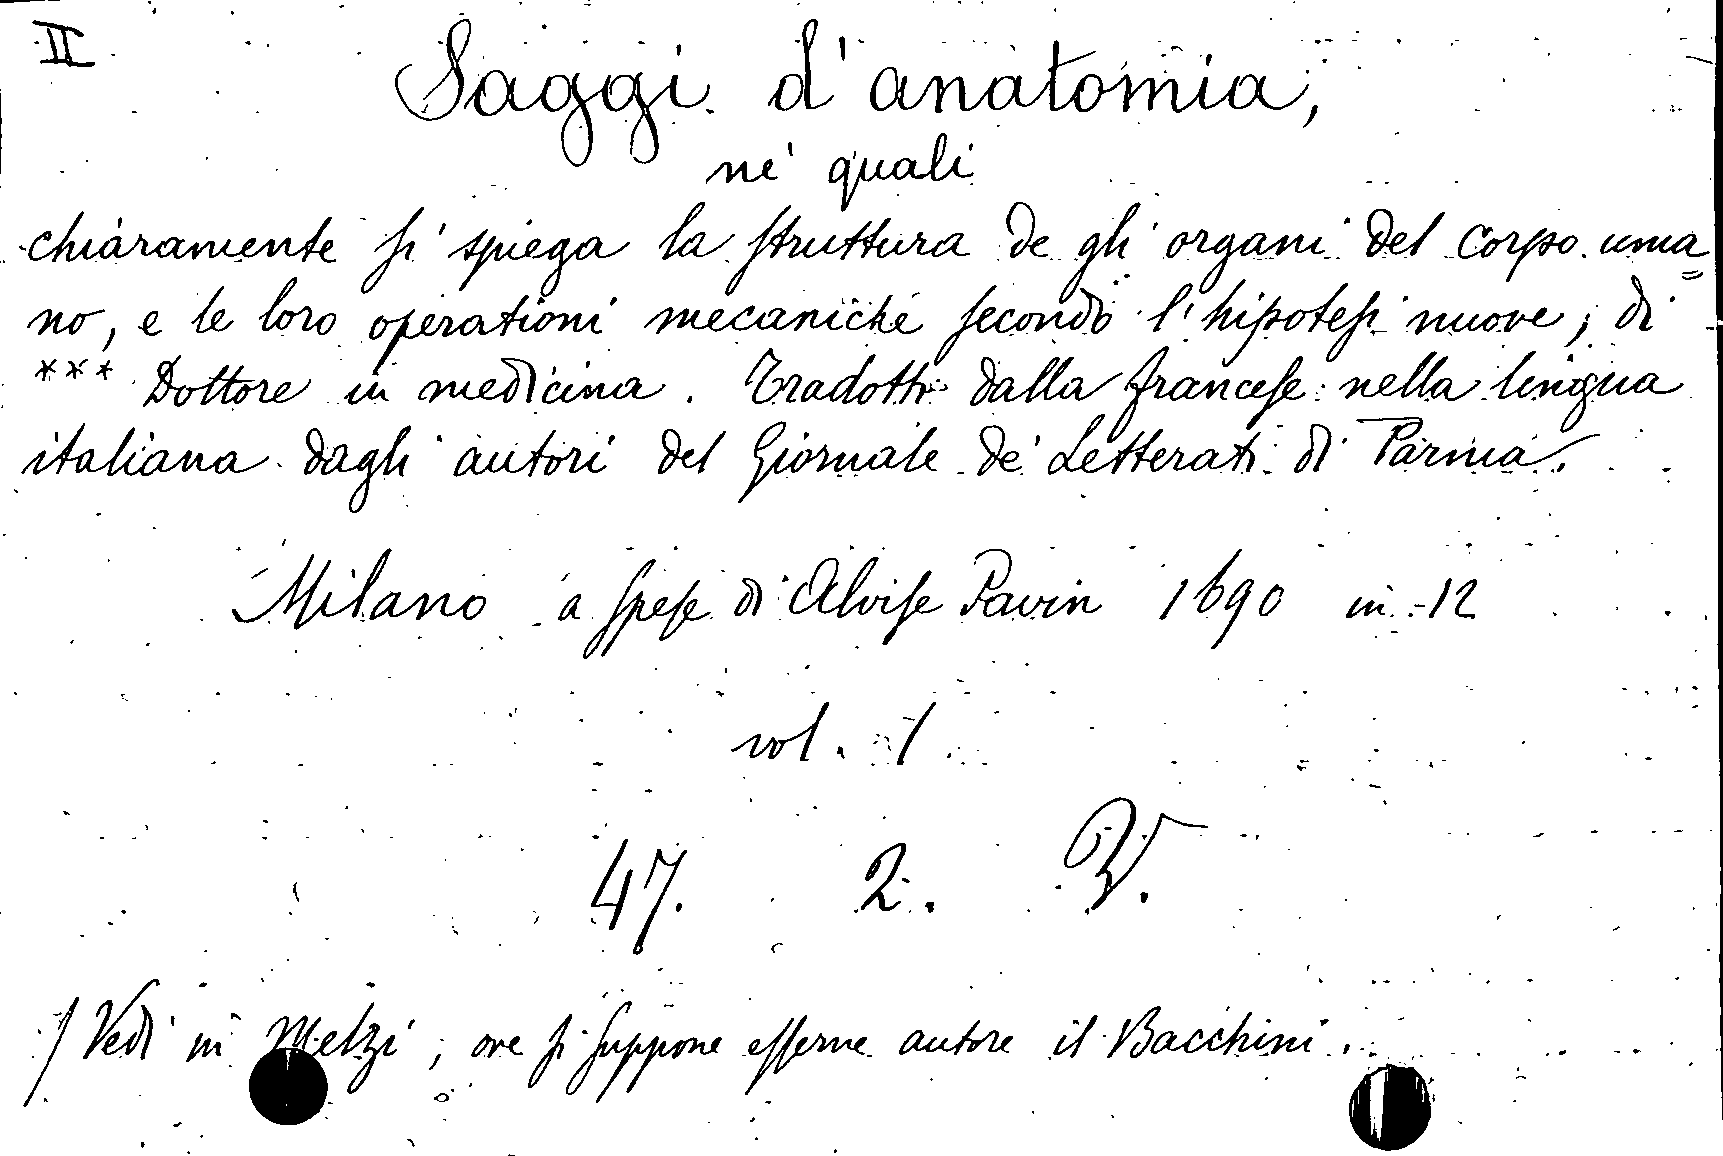 II
Saggi d'anatomia,
ne' quali
chiaramente si spiega la struttura de gli organi del corpo uma=
no, e le loro operationi mecaniche secondo l'hipotesi nuove; di
*** Dottore in medicina. Tradotti dalla francese nella lingua
italiana dagli autori del Giornale de' Letterati di Parma.
Milano a spese di Alvise Pavin 1690 in-12
vol. 1
47. 2. V.
/ Vedi in Melzi, ove si suppone esserne autore il Bacchini.